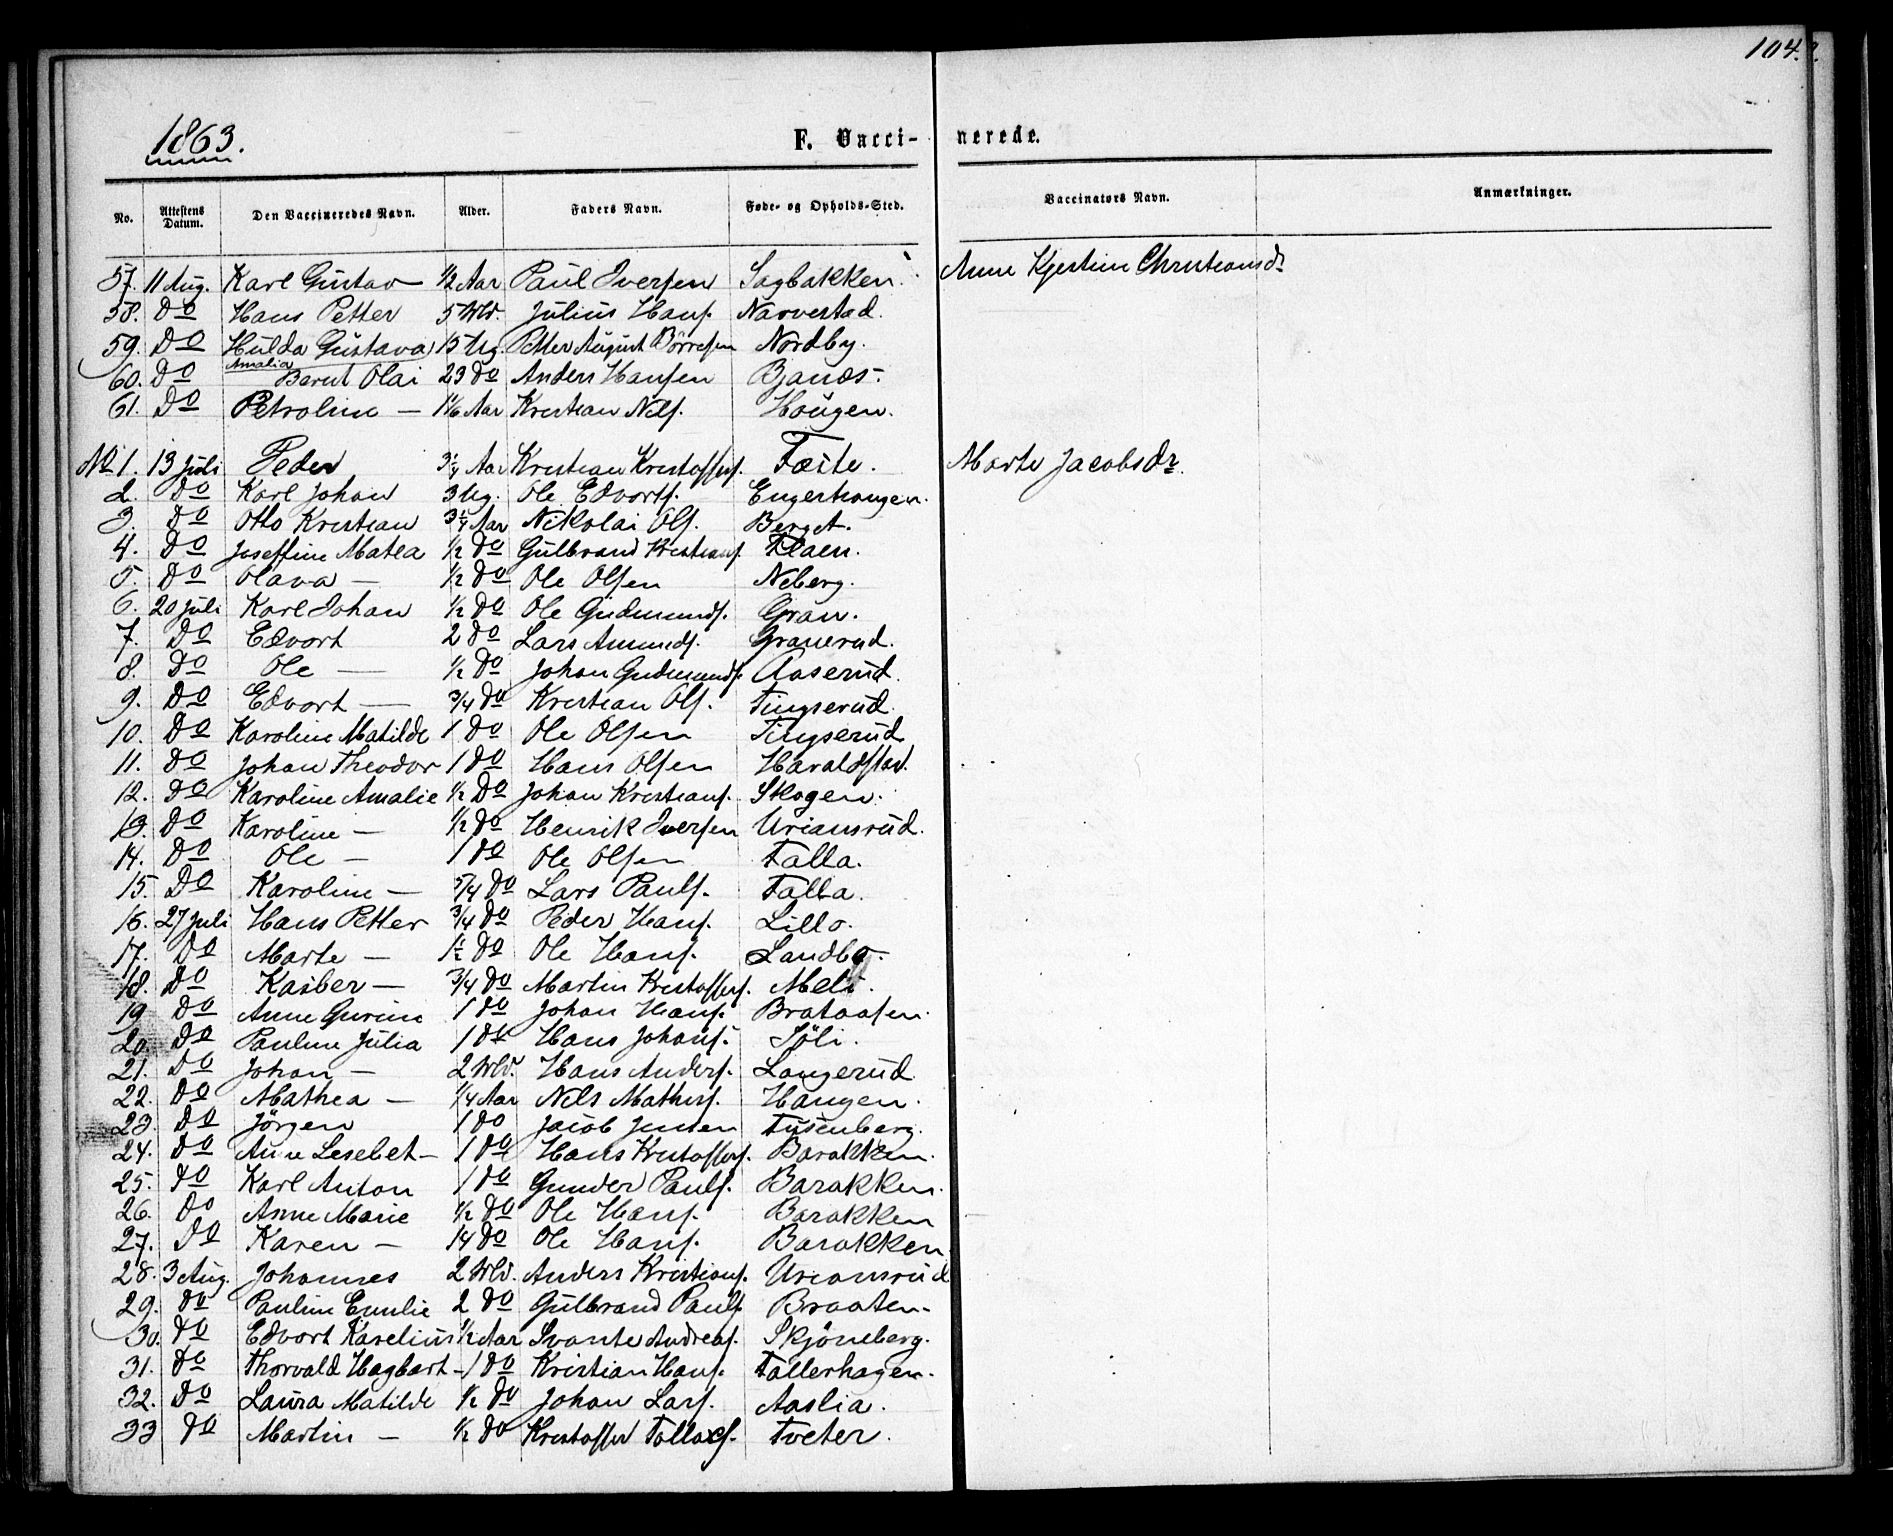 104.
1863.
F. Vaccinerede.
No. Attestens Datum. Den Vaccineredes Navn. Alder. Faders Navn. Føde- og Opholds-Sted. Vaccinators Navn. Anmærkninger.
57. 11 Aug. Karl Gustav 1/2 Aar Paul Iversen Sagbakken. Anne Kjerstine Christiansdr
58. Do Hans Petter 5 Hans. Narvestad.
59. Do Hulda Gustava 15 Ug. Petter August Börresen Nordby.
Amalia
60. Do Bernt Olai 23 do Anders Hansen
61. Do Petroline — Aar Kristian Nils. Hougen.
No 1. 13 Juli Peder Aar Kristian Kristoffers. Fæste. Marte Jacobsdr.
2. Do Karl Johan 3 Ug. Ole Edvorts. Engerhaugen.
3. Do Otto Kristian Aar Nikolai Ols. Berget.
4. Do Joseffine Matea 1/2 Do Gulbrand Kristians. Flaen.
5. Do Olava — 1/2 Do Ole Olsen Neberg.
6. 20 Juli Karl Johan 1/2 Do Ole Gudmunds. Gran.
7. Do Edvort 2 Do Lars Amunds. Granerud.
8. Do Ole — 1/2 Do Johan Gudmunds. Aaserud.
9. Do Edvort — 3/4 do Kristian Ols. Tingserud.
10. Do Karoline Matilde 1 Do Ole Olsen Tingserud
11. Do Johan Theodor 1 do Hans Olsen Haraldstad.
12. Do Karoline Amalie 1/2 Do Johan Kristians. Skogen.
13. Do Karoline — 1/2 do Henrik Iversen Uriansrud.
14. Do Ole — 1 do Ole Olsen Falla.
15. Do Karoline — 5/4 do Lars Pauls. Falla.
16. 27 Juli Hans Petter 3/4 do Peder Hans. Lillo.
17. Do Marte — 1/2 do Ole Hans. Landbo.
18. Do Kasber — 3/4 do Martin Kristoffers.
19 Do Anne Gurine 1 do Johan Hans. Brataasen.
20. Do Pauline Julia 1 do Hans Johans. Söli.
21. Do Johan — 2 Hans Anders. Langerud
22. Do Mathea — 1/4 Aar Nils Mathis. Haugen.
23. Do Jörgen 1 do Jacob Jensen Fusenberg.
24. Do Anne Lesebet — 1 do Hans Kristoffers. Barakken.
25. do Karl Anton 1 do Gunder Pauls. Barakken.
26. Do Anne Marie 1/2 do Ole Hans. Barakken
27. Do Karen — do Ole Hans. Barakken.
28. 3 Aug. Johannes 2 Anders Kristians. Uriansrud
29. do Pauline Emilie 2 do Gulbrand Pauls Braaten.
30. do Edvort Karelius 1/2 Aar Svante Andreas. Skjöneberg.
31. Do Thorvald Hagbart — 1 do Kristian Hans. Fallerhagen.
32. Do Laura Matilde 1/2 do Johan Lars. Aaslia.
33 do Martin — 1/2 do Kristoffer Tollefs. Tveter.
Marte Jacobsdr.